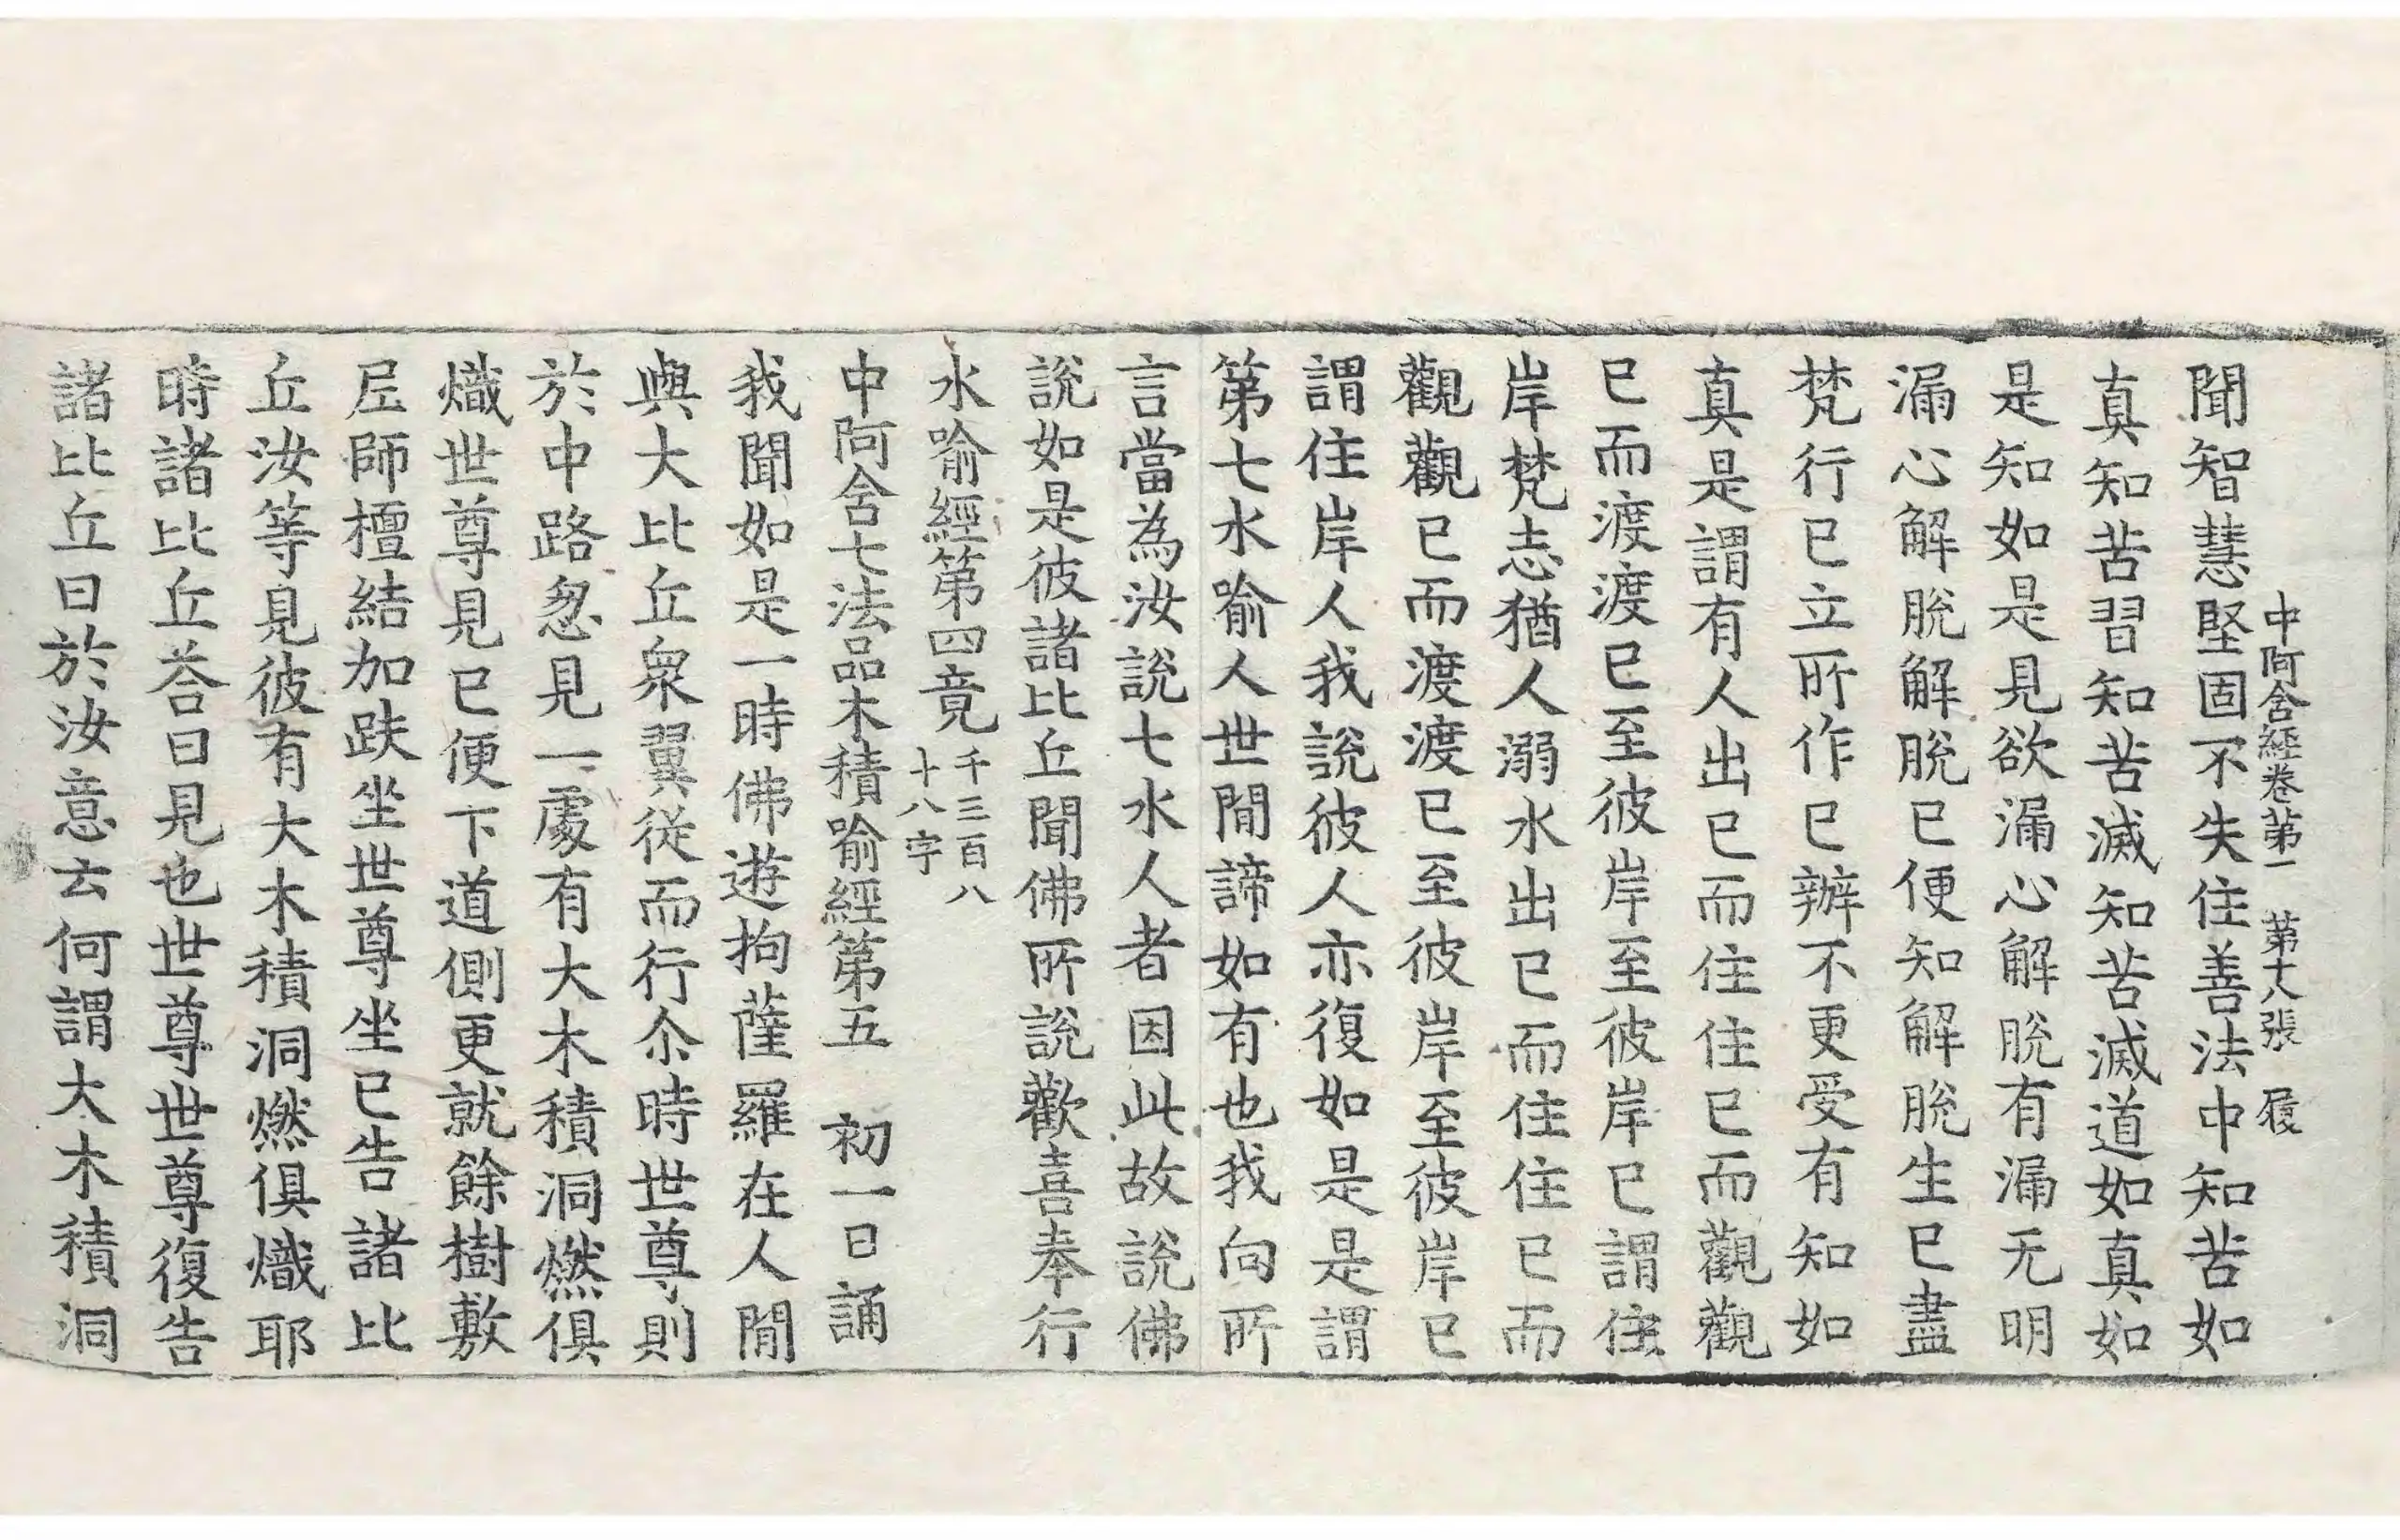 中阿含經卷第一　第十八張　履
聞智慧堅固不失住善法中知苦如
真知苦習知苦滅知苦滅道如真如
是知如是見欲漏心解脫有漏无明
漏心解脫解脫已便知解脫生已盡
梵行已立所作已辦不更受有知如
真是謂有人出已而住住已而觀觀
已而渡渡已至彼岸至彼岸已謂住
岸梵志猶人溺水出已而住住已而
觀觀已而渡渡已至彼岸至彼岸已
謂住岸人我說彼人亦復如是是謂
第七水喻人世閒諦如有也我向所
言當為汝說七水人者因此故說佛
說如是彼諸比丘聞佛所說歡喜奉行
水喻經第四竟千三百八十八字
中阿含七法品木積喻經第五　初一日誦
我聞如是一時佛遊拘薩羅在人閒
與大比丘眾翼從而行尒時世尊則
於中路忽見一處有大木積洞燃俱
熾世尊見已便下道側更就餘樹敷
尼師檀結加趺坐世尊坐已告諸比
丘汝等見彼有大木積洞燃俱熾耶
時諸比丘荅曰見也世尊世尊復告
諸比丘曰於汝意云何謂大木積洞